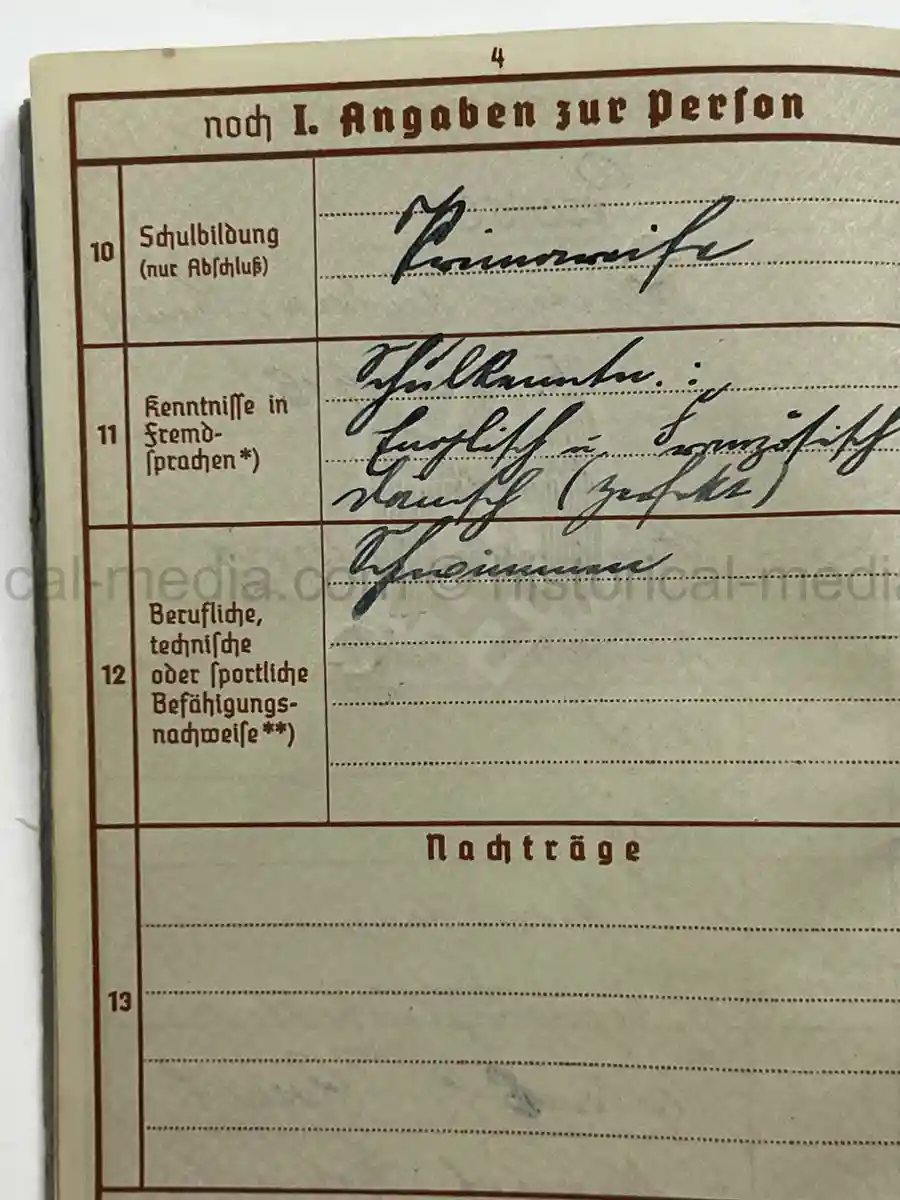 4
noch I. Angaben zur Person
10
Schulbildung
(nur Abschluß)
Primareife
11
Kenntnisse in
Fremd-
sprachen*)
Schulkenntn. :
Englisch u. Französisch
dänisch (perfekt)
12
Berufliche,
technische
oder sportliche
Befähigungs-
nachweise**)
Schwimmen
cal-media.com © historical-media
Nachträge
13